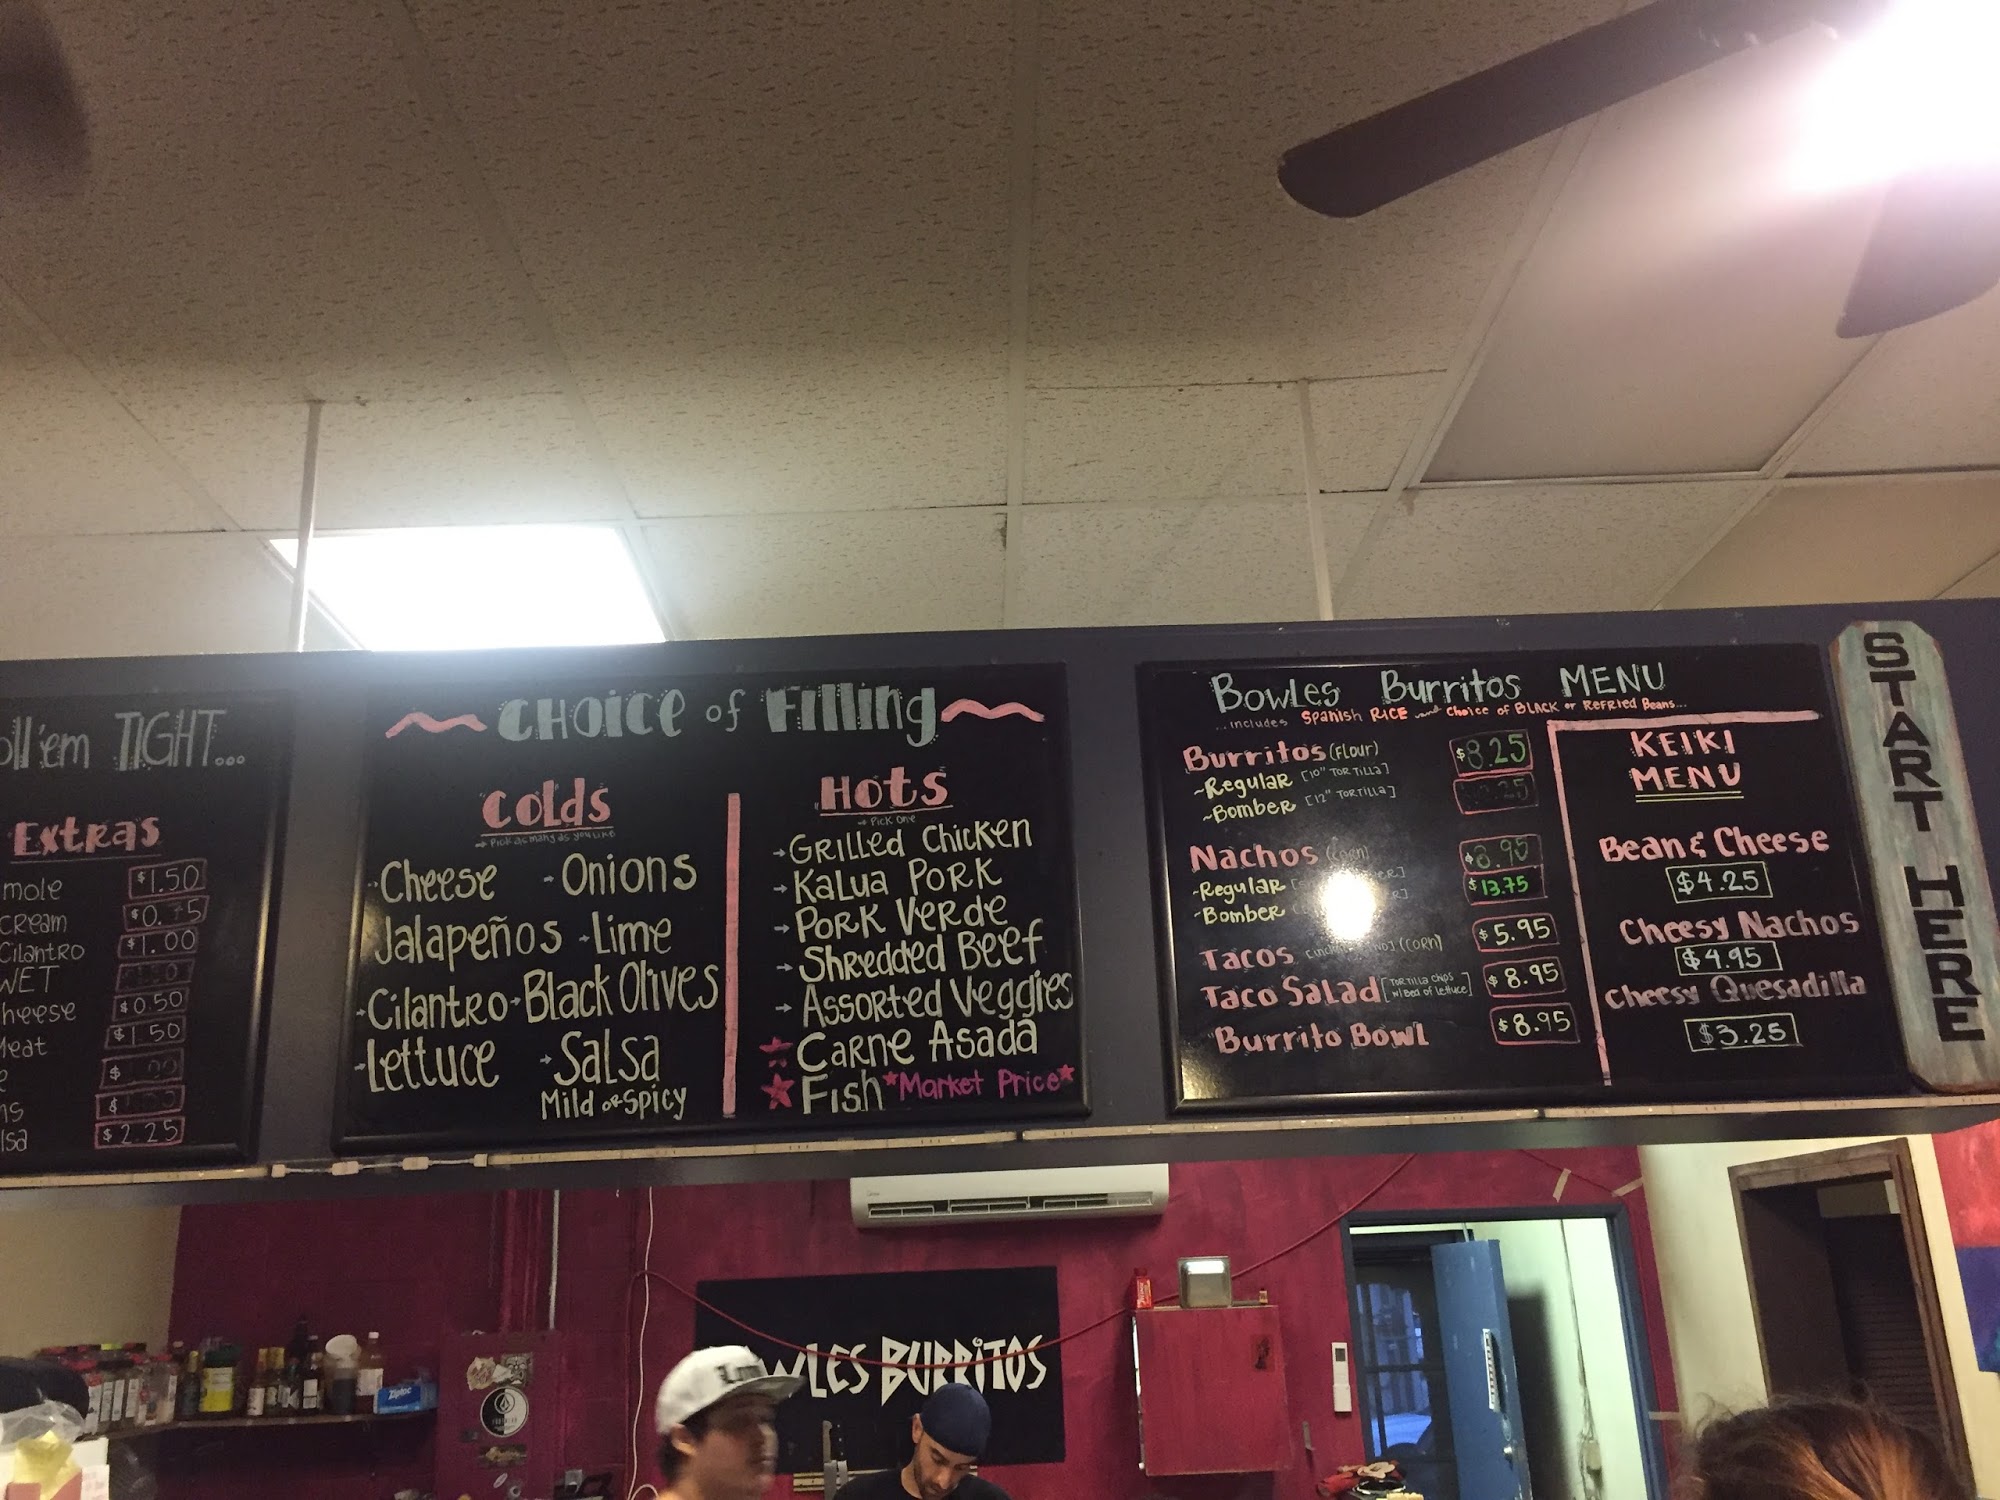 oll'em TIGHT...
Extras
mole $1.50
cream
Cilantro $1.00
WET
heese $0.50
Meat $1.50
$
$
lsa $2.25
CHOICE of Filling
Colds
Pick as many as you like
Cheese - Onions
Jalapeños - Lime
- Cilantro - Black Olives
- Lettuce - Salsa
Mild or Spicy
Hots
Pick One
Grilled Chicken
Kalua Pork
Pork Verde
Shredded Beef
Assorted Veggies
Carne Asada
Fish *Market Price*
Bowles Burritos MENU
...includes Spanish RICE and Choice of BLACK or Refried Beans...
Burritos (Flour) $8.25
~Regular [10" TORTILLA]
~Bomber [12" TORTILLA]
Nachos (corn) $8.95
~Regular $13.75
~Bomber
Tacos (CORN) $5.95
Taco Salad [TORTILLA chips w/ Bed of lettuce] $8.95
Burrito Bowl $8.95
KEIKI
MENU
Bean & Cheese
$4.25
Cheesy Nachos
$4.95
Cheesy Quesadilla
$3.25
START HERE
OWLES BURRITOS
Ziploc